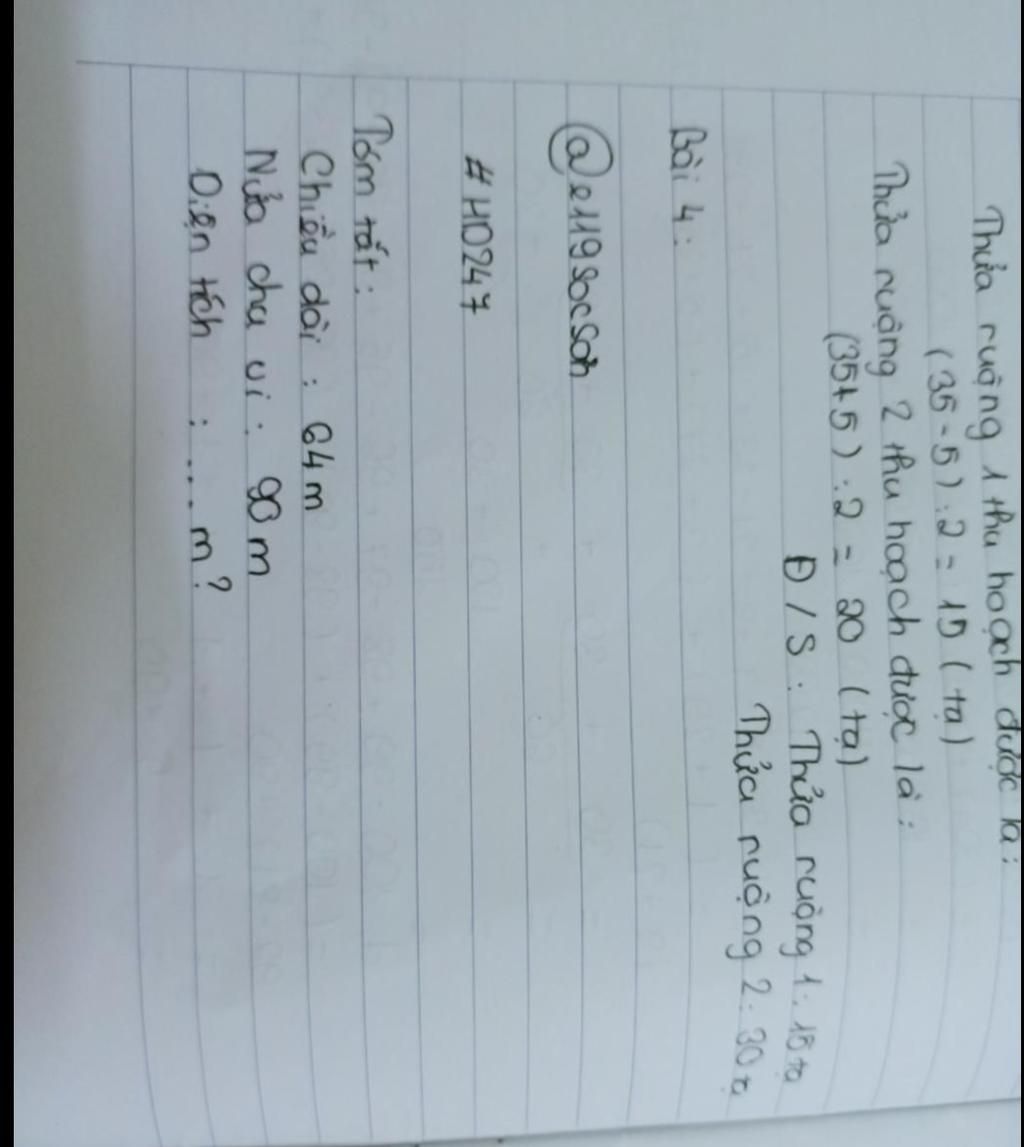 Thửa ruộng 1 thu hoạch được là:
(35-5):2=15 (tạ)
Thửa ruộng 2 thu hoạch được là:
(35+5):2= 20 (tạ)
Đ/S: Thửa ruộng 1: 15 tạ
Thửa ruộng 2: 30 tạ
Bài 4:
@e119socson
#HD247
Tóm tắt:
Chiều dài: 64m
Nửa chu vi: 90 m
Diện tích : ... m?